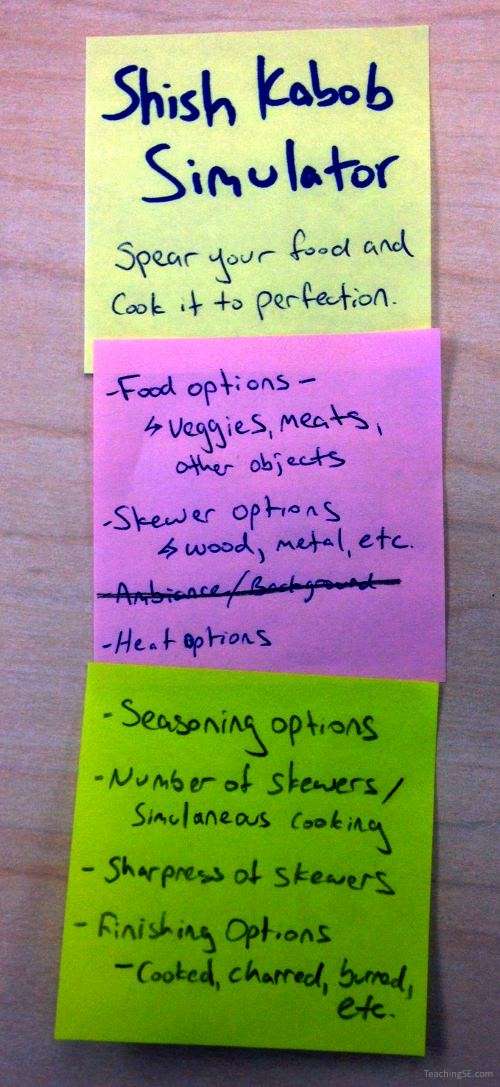 Shish Kabob
Simulator
Spear your food and
Cook it to perfection.
-Food options-
↳ Veggies, meats,
other objects
-Skewer options
↳ wood, metal, etc.
-Ambiance/Background
-Heat options
- Seasoning options
- Number of skewers/
Simulaneous cooking
- Sharpness of skewers
- Finishing Options
- Cooked, charred, burred,
etc.
TeachingSE.com